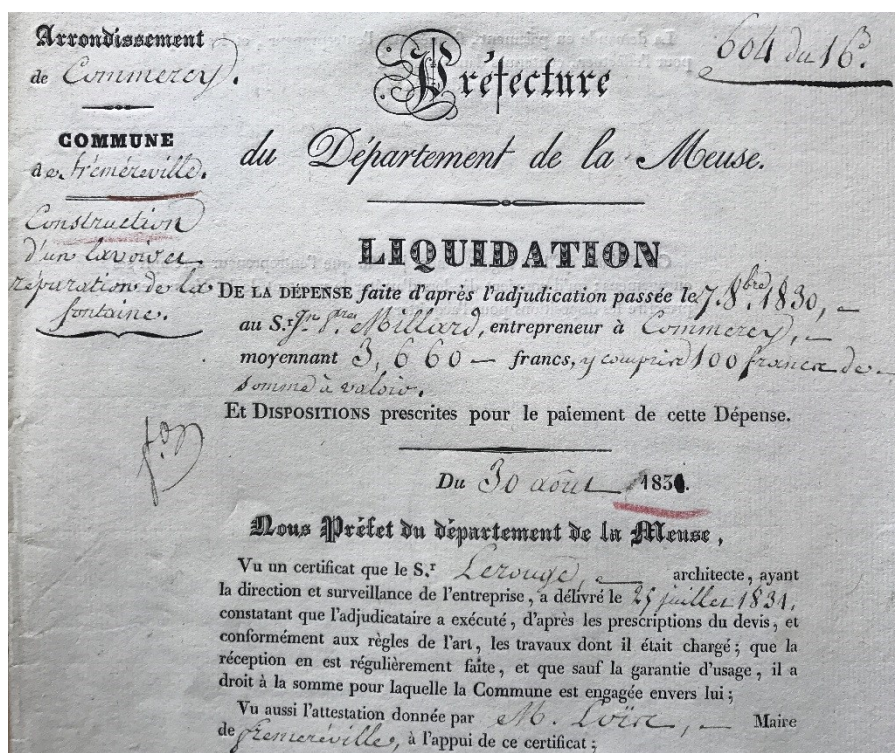 Arrondissement
de Commercy.
COMMUNE
de frémeréville.
Construction
d'un lavoir et
réparation de la
fontaine.
604 du 16.
Préfecture
du Département de la Meuse.
LIQUIDATION
DE LA DÉPENSE faite d'après l'adjudication passée le 7. 8.bre 1830,
au S.r Jn. Millard, entrepreneur à Commercy,
moyennant 3,660 — francs, y compris 100 francs de
somme à valoir.
Et DISPOSITIONS prescrites pour le paiement de cette Dépense.
Du 30 août 1831.
Nous Préfet du département de la Meuse,
Vu un certificat que le S.r Lerouge, architecte, ayant
la direction et surveillance de l'entreprise, a délivré le 25 juillet 1831,
constatant que l'adjudicataire a exécuté, d'après les prescriptions du devis, et
conformément aux règles de l'art, les travaux dont il était chargé; que la
réception en est régulièrement faite, et que sauf la garantie d'usage, il a
droit à la somme pour laquelle la Commune est engagée envers lui;
Vu aussi l'attestation donnée par M. Maire
de fremeréville, à l'appui de ce certificat;